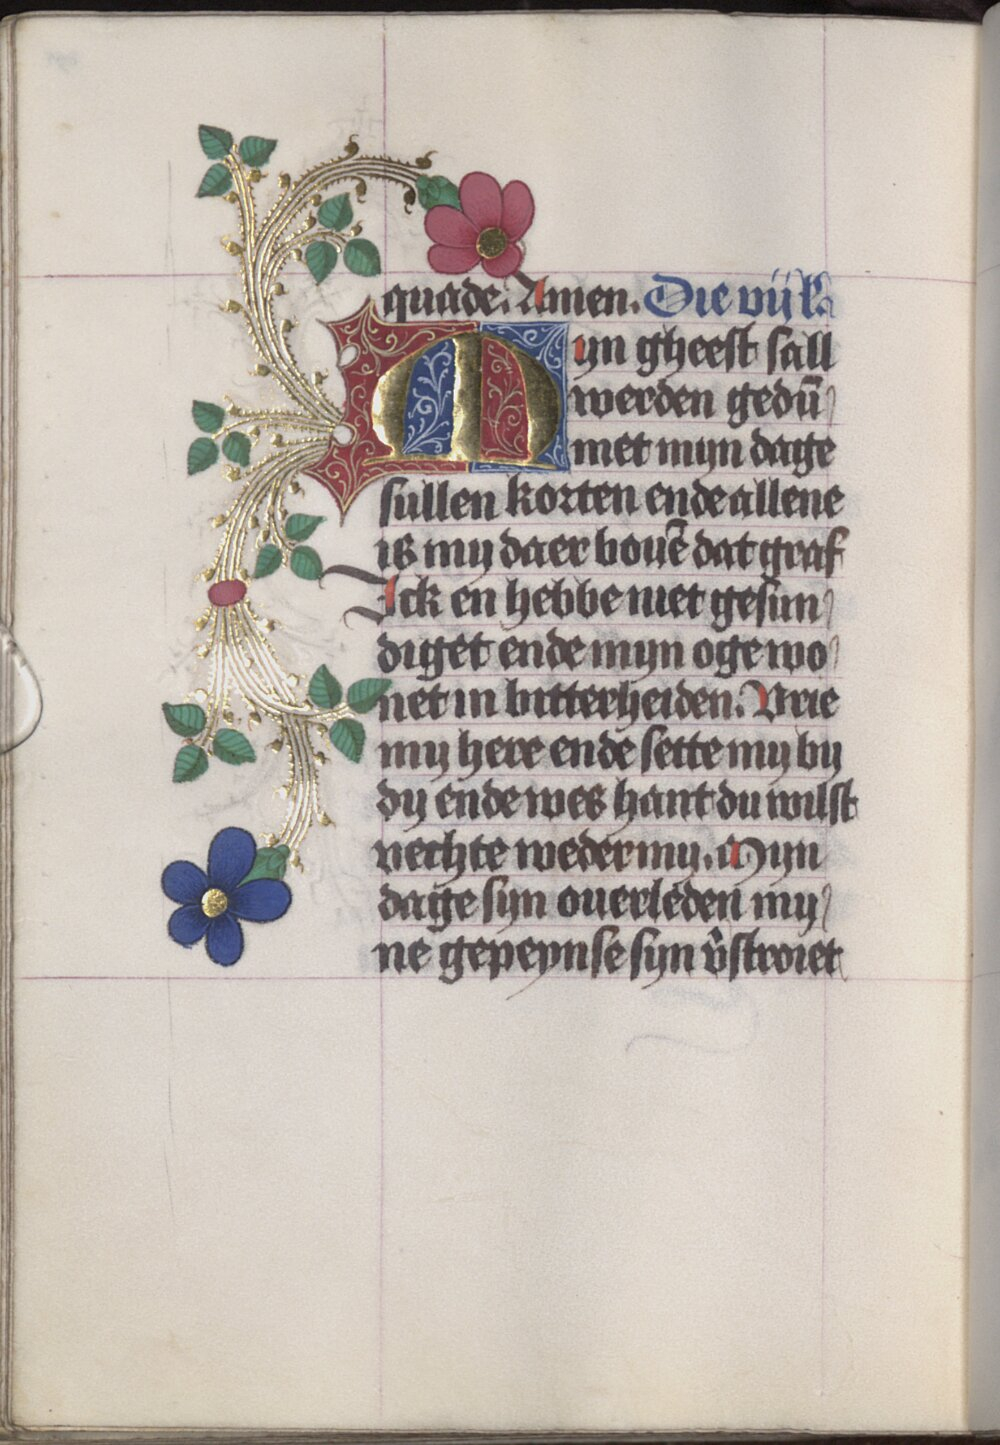 quade. Amen. Die vij l.
Myn gheest sall
werden gedū
met myn dage
sullen korten ende allene
is my daer bouē dat graf
Ick en hebbe niet gesun
diget ende myn oge wo
net in bitterheiden. Vrie
my here ende sette my by
dy ende wes hant du wilst
vechte weder my. Myn
dage syn ouerleden my
ne gepeynse syn v̄stroiet